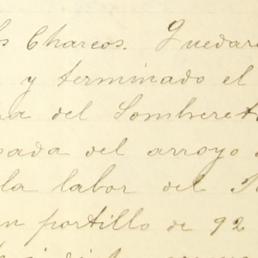 s Charcos. Quedar
y terminado el
a del Sombreret
ada del arroyo
la labor del
n portillo de 92